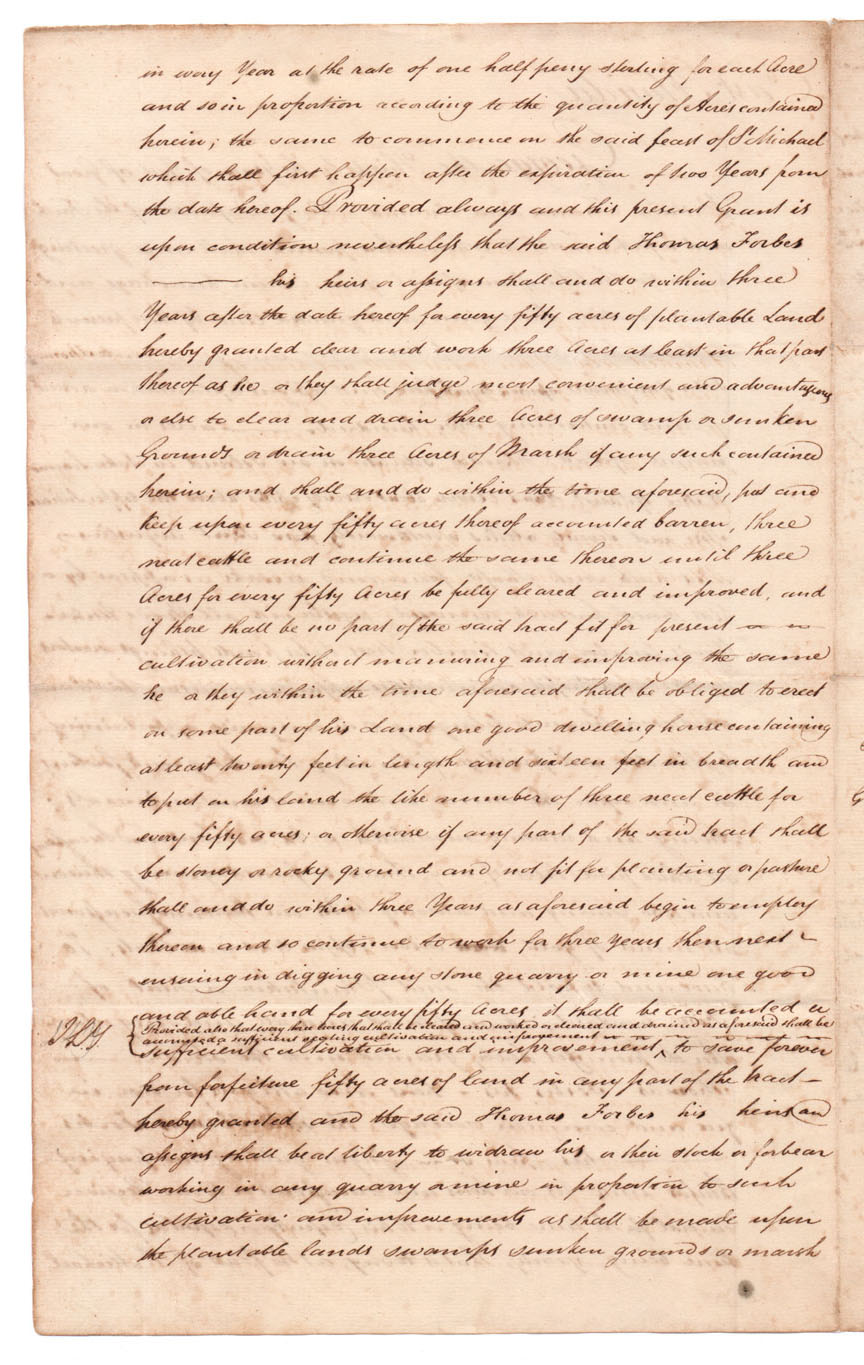 in every Year at the rate of one half peny sterling for each Acre
and so in proportion according to the quantity of Acres contained
herein; the same to commence on the said feast of St Michael
which shall first happen after the expiration of two Years from
the date hereof. Provided always and this present Grant is
upon condition nevertheless that the said Thomas Forbes
his heirs or assigns shall and do within three
Years after the date hereof for every fifty acres of plantable Land
hereby granted clear and work three Acres at least in that part
thereof as he or they shall judge most convenient and advantageous
or else to clear and drain three Acres of swamp or sunken
Grounds or drain three Acres of Marsh if any such contained
herein; and shall and do within the time aforesaid, put and
keep upon every fifty acres thereof accounted barren, three
neat cattle and continue the same thereon until three
Acres for every fifty Acres be fully cleared and improved, and
if there shall be no part of the said tract fit for present
cultivation without manuring and improving the same
he or they within the time aforesaid shall be obliged to erect
on some part of his Land one good dwelling house containing
at least twenty feet in length and sixteen feet in breadth and
to put on his land the like number of three neat cattle for
every fifty acres; or otherwise if any part of the said tract shall
be stoney or rocky ground and not fit for planting or pasture
shall and do within three Years as aforesaid begin to employ
thereon and so continue to work for three years then next
ensuing in digging any stone quarry or mine one good
and able hand for every fifty Acres, it shall be accounted a
Provided also that every three acres that shall be cleared and worked or cleared and drained as aforesaid shall be
accounted a sufficient seating cultivation and improvement
sufficient cultivation and improvement, ^ to save forever
from forfeiture fifty acres of land in any part of the tract
hereby granted and the said Thomas Forbes his heirs and
assigns shall be at liberty to widraw his or their stock or forbear
working in any quarry or mine in proportion to such
cultivation and improvements as shall be made upon
the plantable lands swamps sunken grounds or marsh